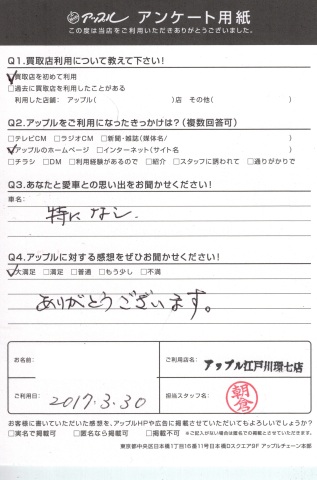 アップル アンケート用紙
この度は当店をご利用いただきありがとうございました。
Q1.買取店利用について教えて下さい!
買取店を初めて利用
□過去に買取店を利用したことがある
利用した店舗: アップル( )店 その他( )
Q2.アップルをご利用になったきっかけは?(複数回答可)
□テレビCM □ラジオCM □新聞・雑誌(媒体名/ )
アップルのホームページ □インターネット(サイト名 )
□チラシ □DM □利用経験があるので □紹介 □スタッフに誘われて □通りがかりで
Q3.あなたと愛車との思い出をお聞かせください!
車名:
特になし
Q4.アップルに対する感想をぜひお聞かせください!
大満足 □満足 □普通 □もう少し □不満
ありがとうございます。
お名前:
ご利用店名:
アップル江戸川環七店
ご利用日:
2017.3.30
担当スタッフ名:
朝倉
お客様に書いていただいた感想を、アップルHPや広告に掲載させていただいてもよろしいでしょうか?
□実名で掲載可 □匿名なら掲載可 □掲載不可 ※ご記入がない場合は匿名での掲載とさせていただきます。
東京都中央区日本橋1丁目16番11号日本橋Dスクエア8F アップルチェーン本部